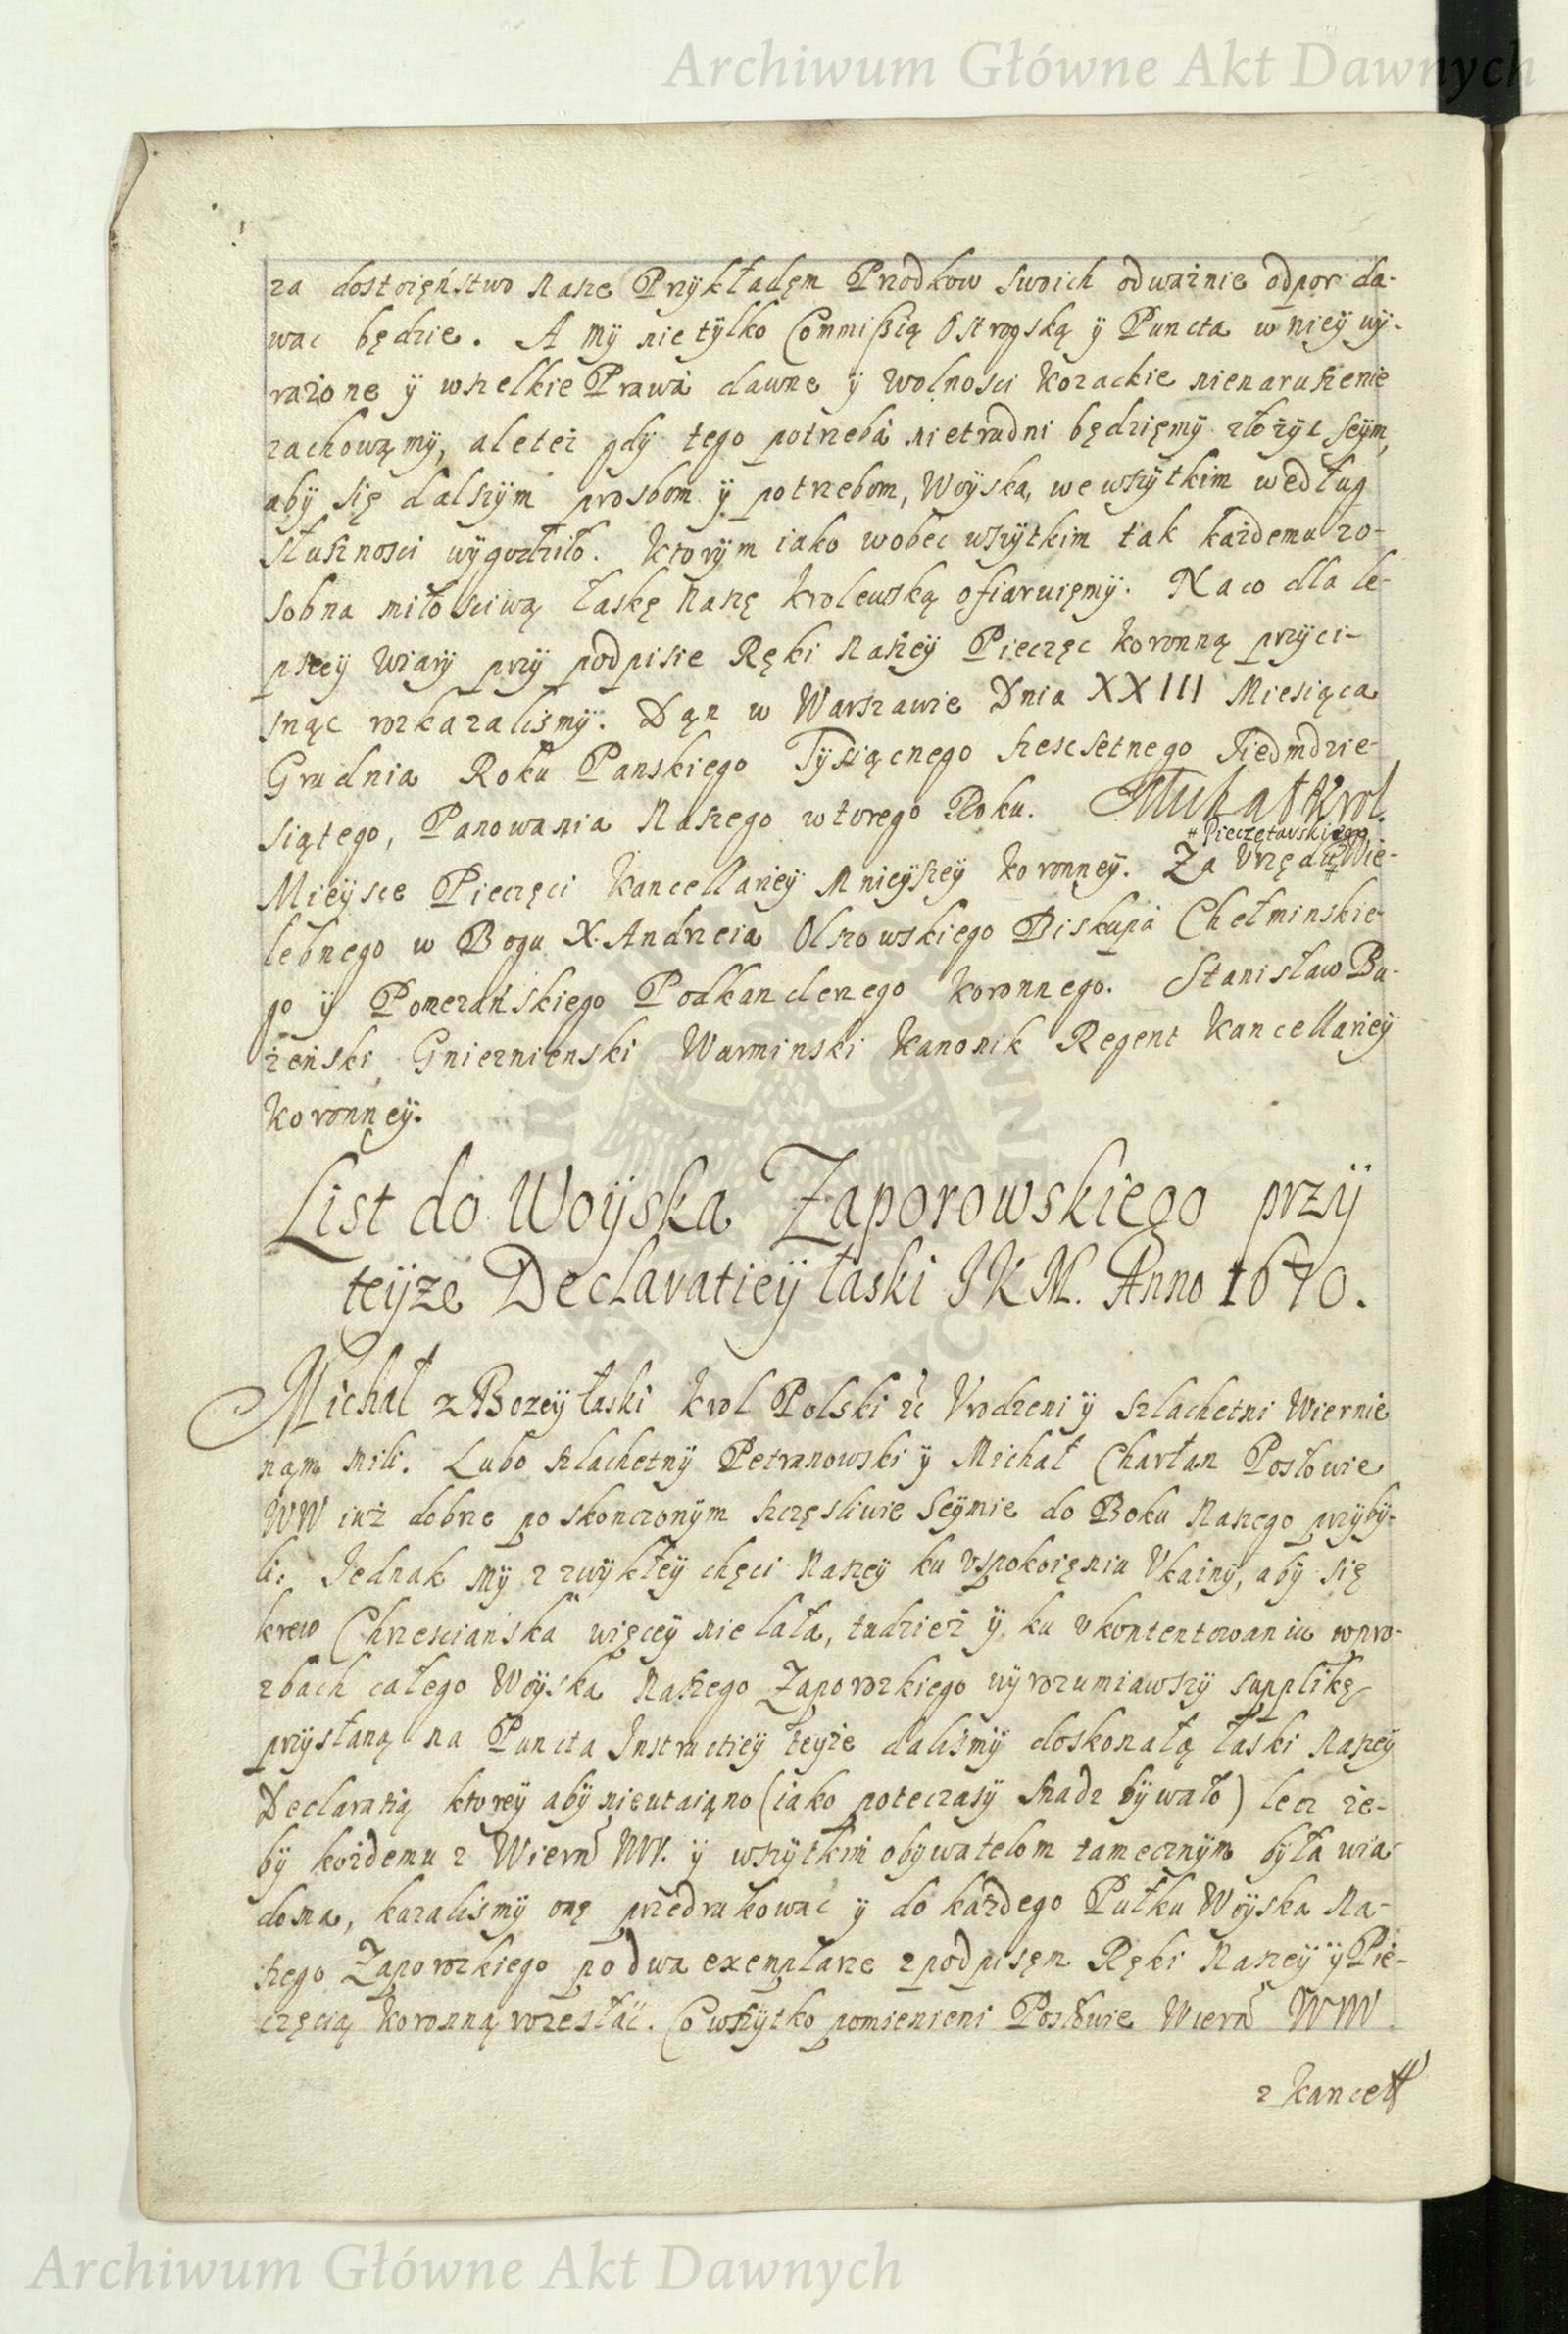 Archiwum Główne Akt Dawnych
za dostoięństwo Nasze Przykładęm Przodkow swoich odważnie odpor da-
wac będzie. A my nie tylko Commißią Ostrogską ÿ Puncta w nieÿ wÿ-
rażone ÿ wszelkie Prawa dawne ÿ Wolnosci Kozackie nienaruszenie
zachowąmÿ, ale też gdÿ tego potrzeba nietrudni będzięmÿ złożÿc Seÿm,
abÿ się dalszÿm prosbom ÿ potrzebom, Woÿska, we wszÿtkim według
Słusznosci wÿgodziło. Ktorÿm iako wobec wszÿtkim tak każdemu zo-
sobna miłosciwą łaskę Naszę Krolewską ofiaruięmÿ. Na co dla le-
pszeÿ Wiarÿ przÿ podpisie Ręki Naszeÿ Pieczęc Koronną przÿci-
snąc rozkazalismÿ. Dąn w Warszawie Dnia XXIII Miesiąca
Grudnia Roku Panskiego Tÿsiącnego szescsetnego Siedmdzie-
siątego, Panowania Naszego wtorego Roku. Michał Krol.
# Pieczętarskiego
Mieÿsce Pieczęci Kancellarieÿ Mnieÿszeÿ Koronneÿ. Za Vrzędu # Wie-
lebnego w Bogu X. Andrzeia Olszowskiego Biskupa Chełminskie-
go ÿ Pomezańskiego Podkanclerzego Koronnego. Stanisław Bu-
żeński Gnieznienski Warminski Kanonik Regent Kancellarieÿ
Koronneÿ.
List do Woÿska Zaporowskiego przÿ
teÿże Declaratieÿ łaski JKM. Anno 1670.
Michał z Bozeÿ łaski Krol Polski &c Vrodzeni ÿ Szlachetni Wiernie
nąm mili. Lubo szlachetnÿ Petranowski ÿ Michał Charłan Posłowie
WW iuż dobrze po skonczonÿm szczęsliwie Seÿmie do Boku Naszego przÿbÿ-
li: Jednak mÿ z zwÿkłeÿ chęci Naszeÿ ku vspokoięniu Vkainÿ, abÿ się
krew Chrzescianska więceÿ nie lała, tudzież ÿ ku vkontentowaniu w pro-
zbach całego Woÿska Naszego Zaporozkiego wÿrozumiawszÿ supplikę
przÿsłaną na Puncta Instructieÿ teÿże dalismÿ doskonałą łaski Naszeÿ
Declaratią ktoreÿ abÿ nieutaiąno (iako poteczasÿ snadz bÿwało) lecz że-
bÿ każdemu z Wiern WW. ÿ wszÿtkim obÿwatelom tamecznÿm bÿła wia-
doma, kazalismÿ onę przedrukowac ÿ do każdego Pułku Woÿska Na-
szego Zaporozkiego po dwa exemplarze z podpisęm Ręki Naszeÿ ÿ Pie-
częcią Koronną rozesłać. Co wszÿtko pomienieni Posłowie Wiern WW
z Kancell
Archiwum Główne Akt Dawnych